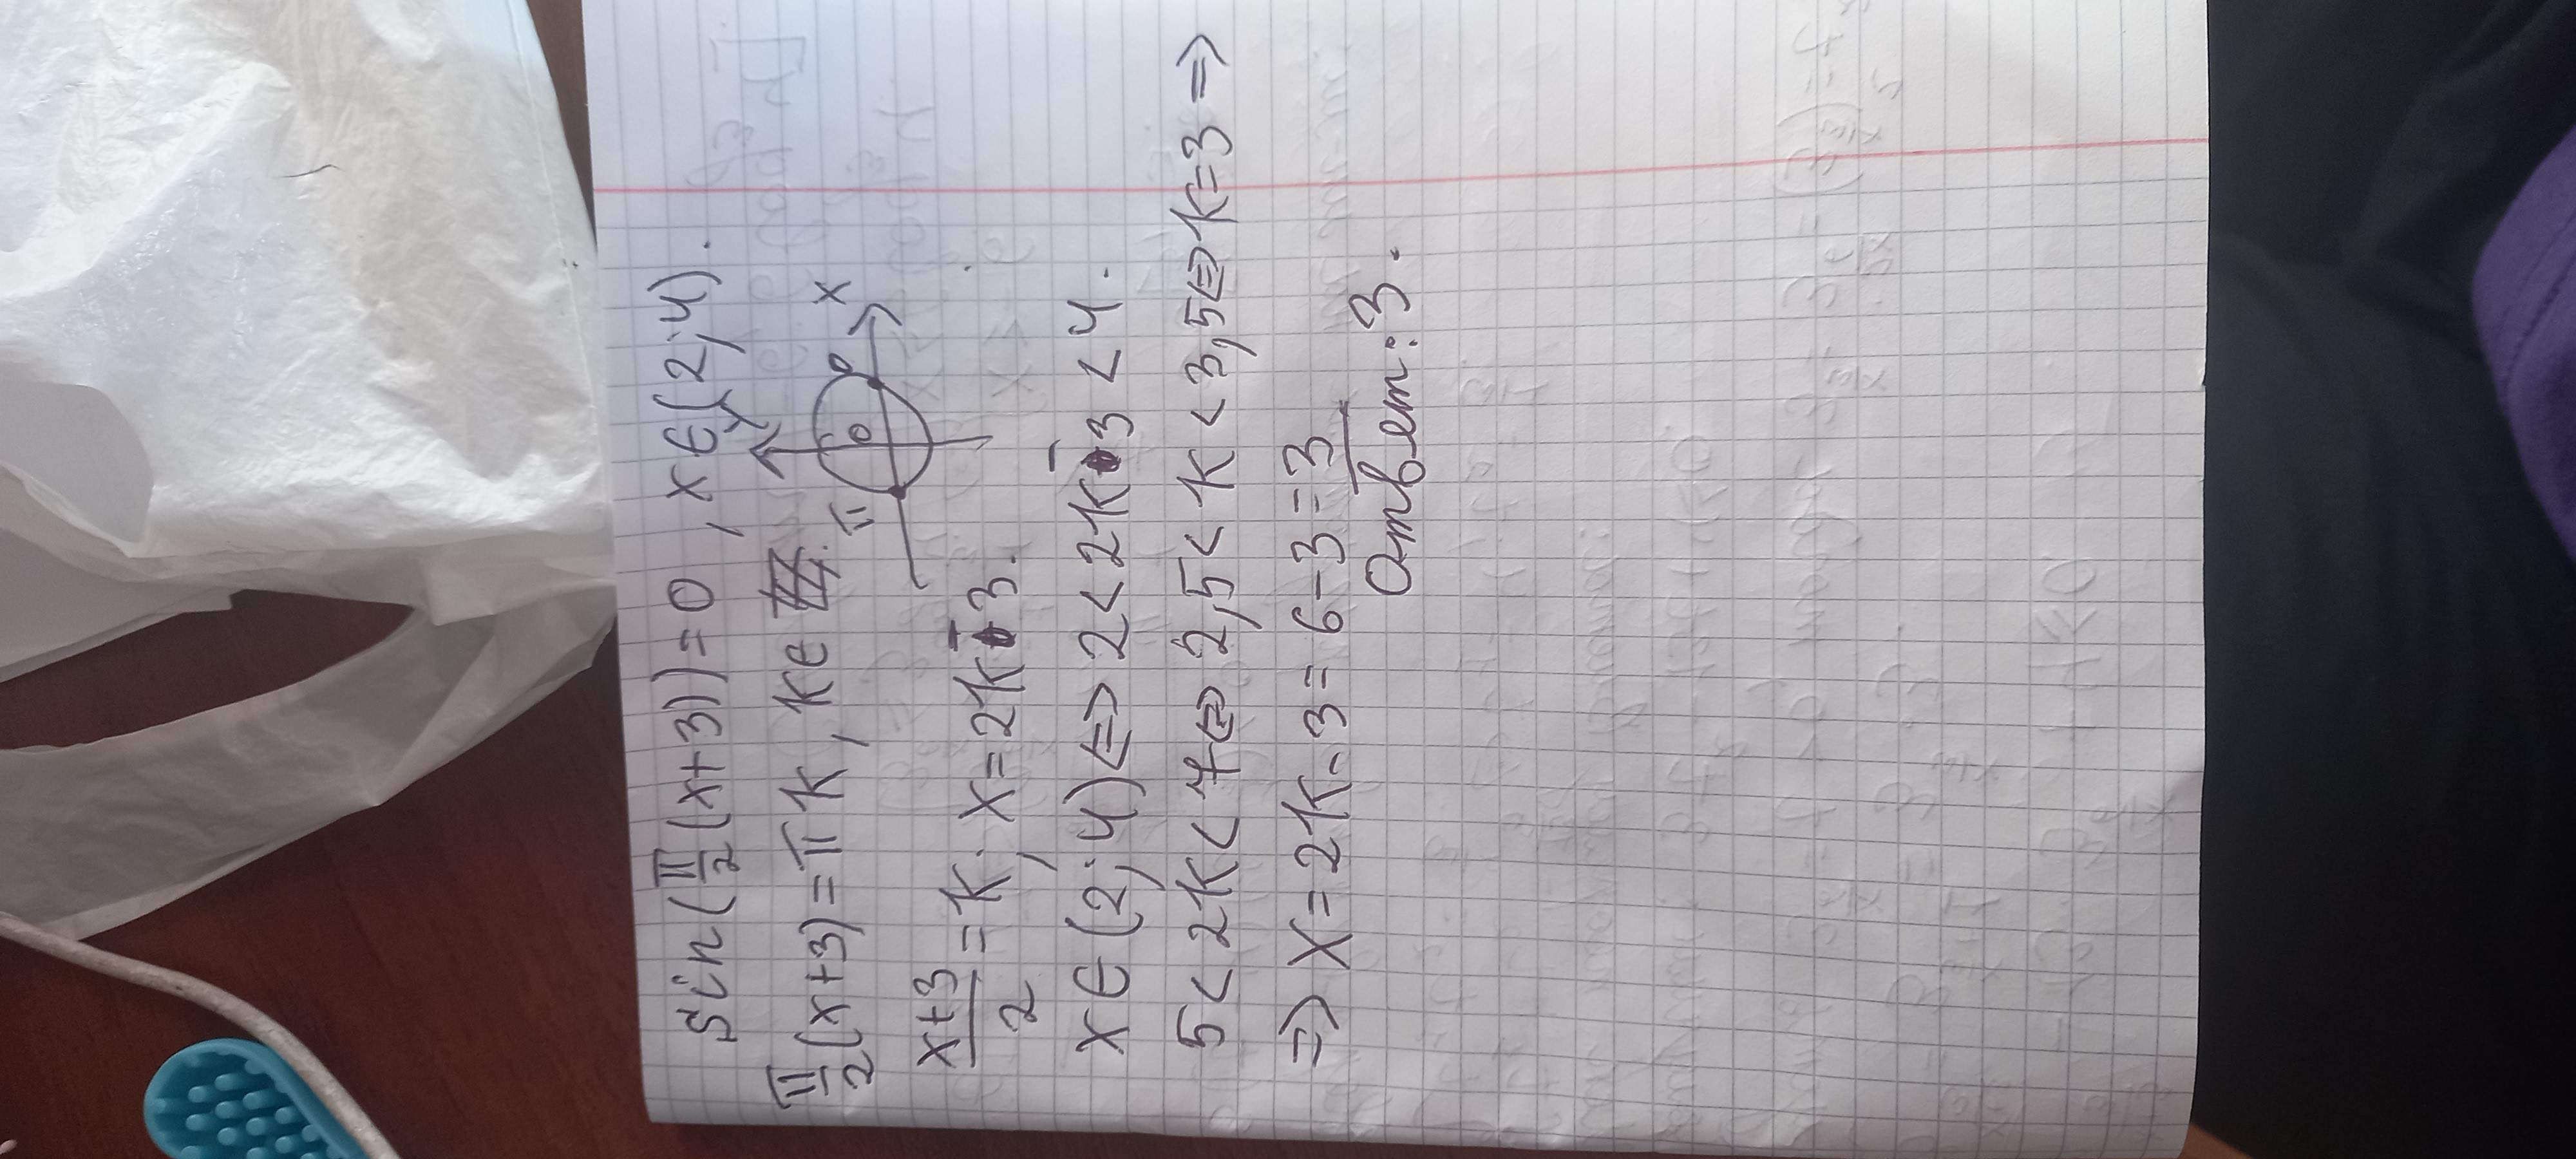 sin(π/2(x+3))=0, x∈(2;4).
π/2(x+3)=πk, k∈ℤ.
y
x
0
π
0
(x+3)/2=k; x=2k-3.
x∈(2;4)<=>2<2k-3<4.
5<2k<7<=>2,5<k<3,5<=>k=3=>
=>x=2k-3=6-3=3
Ответ:3.